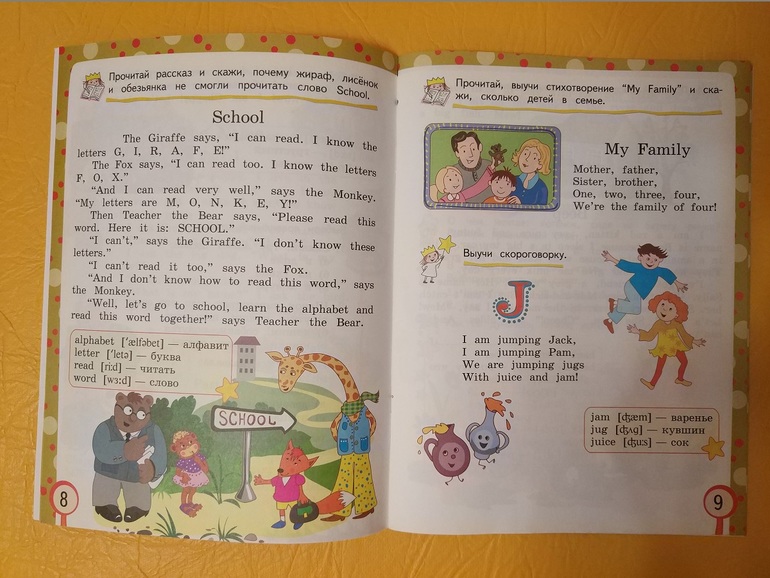 Прочитай рассказ и скажи, почему жираф, лисёнок
и обезьянка не смогли прочитать слово School.
School
The Giraffe says, “I can read. I know the
letters G, I, R, A, F, E!”
The Fox says, “I can read too. I know the letters
F, O, X.”
“And I can read very well,” says the Monkey.
“My letters are M, O, N, K, E, Y!”
Then Teacher the Bear says, “Please read this
word. Here it is: SCHOOL.”
“I can’t,” says the Giraffe. “I don’t know these
letters.”
“I can’t read it too,” says the Fox.
“And I don’t know how to read this word,” says
the Monkey.
“Well, let’s go to school, learn the alphabet and
read this word together!” says Teacher the Bear.
alphabet [ˈælfəbɛt] — алфавит
letter [ˈletə] — буква
read [ri:d] — читать
word [wɜ:d] — слово
SCHOOL
8
Прочитай, выучи стихотворение “My Family” и ска-
жи, сколько детей в семье.
My Family
Mother, father,
Sister, brother,
One, two, three, four,
We’re the family of four!
Выучи скороговорку.
J
I am jumping Jack,
I am jumping Pam,
We are jumping jugs
With juice and jam!
jam [ʤæm] — варенье
jug [ʤʌg] — кувшин
juice [ʤus] — сок
9